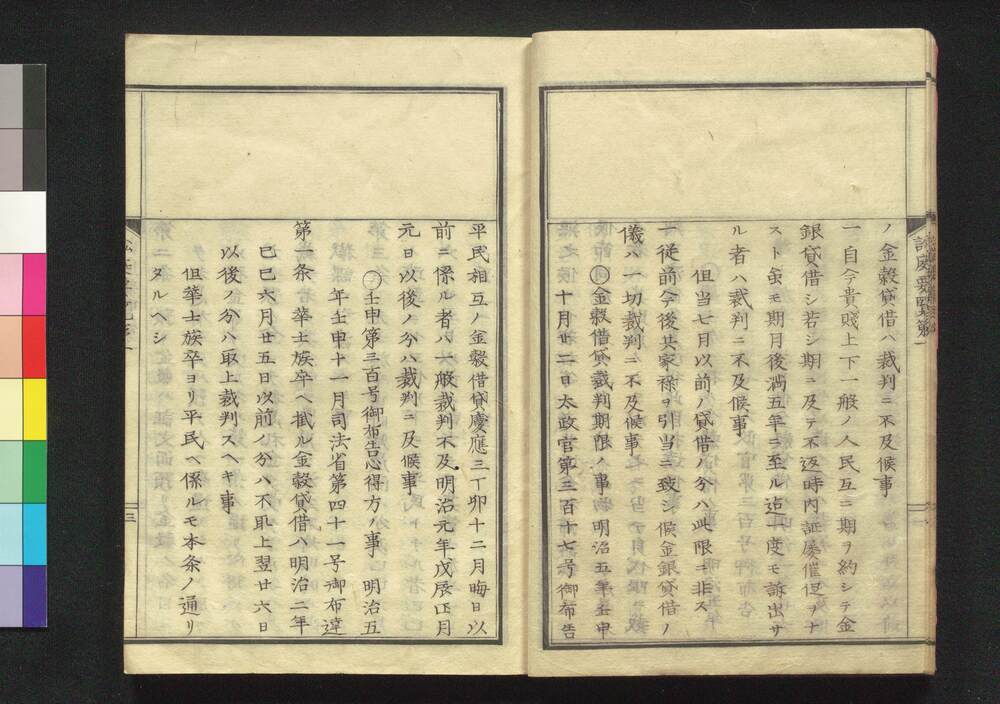 ノ金穀貸借ハ裁判ニ不及候事
一自今貴賤上下一般ノ人民互ニ期ヲ約シテ金
銀貸借シ若シ期ニ及テ不返時内証慶催促ヲナ
スト虽モ期月後満五年ニ至ル迄一度モ訴出サ
ル者ハ裁判ニ不及候事
但当七月以前ノ貸借ノ分ハ此限ニ非ス
一従前今後其家禄ヲ引当ニ致シ候金銀貸借ノ
儀ハ一切裁判ニ不及候事
○金穀借貸裁判期限ノ事 明治五年壬申
十月廿二日太政官第三百十七号御布告
平民相互ノ金穀借貸慶應三丁卯十二月晦日以
前ニ係ル者ハ一般裁判不及明治元年戊辰正月
元日以後ノ分ハ裁判ニ及候事
○壬申第三百号御布告心得方ノ事 明治五
年壬申十一月司法省第四十一号御布達
第一条 華士族卒ヘ掛ル金穀貸借ハ明治二年
己巳六月廿五日以前ノ分ハ不取上翌廿六日
以後ノ分ハ取上裁判スヘキ事
但華士族卒ヨリ平民ヘ係ルモ本条ノ通リ
タルヘシ
三